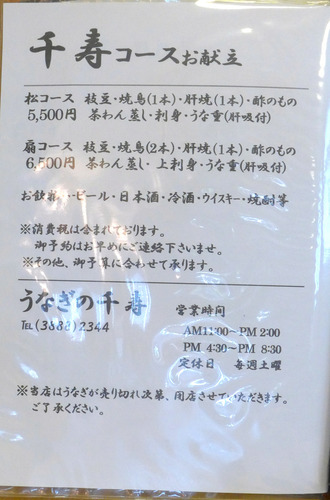 千寿コースお献立
松コース 枝豆・焼鳥(1本)・肝焼(1本)・酢のもの
5,500円 茶わん蒸し・刺身・うな重(肝吸付)
扇コース 枝豆・焼鳥(2本)・肝焼(1本)・酢のもの
6,500円 茶わん蒸し・上刺身・うな重(肝吸付)
お飲物・ビール・日本酒・冷酒・ウイスキー・焼酎等
※消費税は含まれております。
御予約はお早めにご連絡下さいませ。
※その他、御予算に合わせて承ります。
うなぎの千寿
TEL(3888)2344
営業時間
AM11:00~PM 2:00
PM 4:30~PM 8:30
定休日 毎週土曜
※当店はうなぎが売り切れ次第、閉店させていただきます。
ご了承ください。